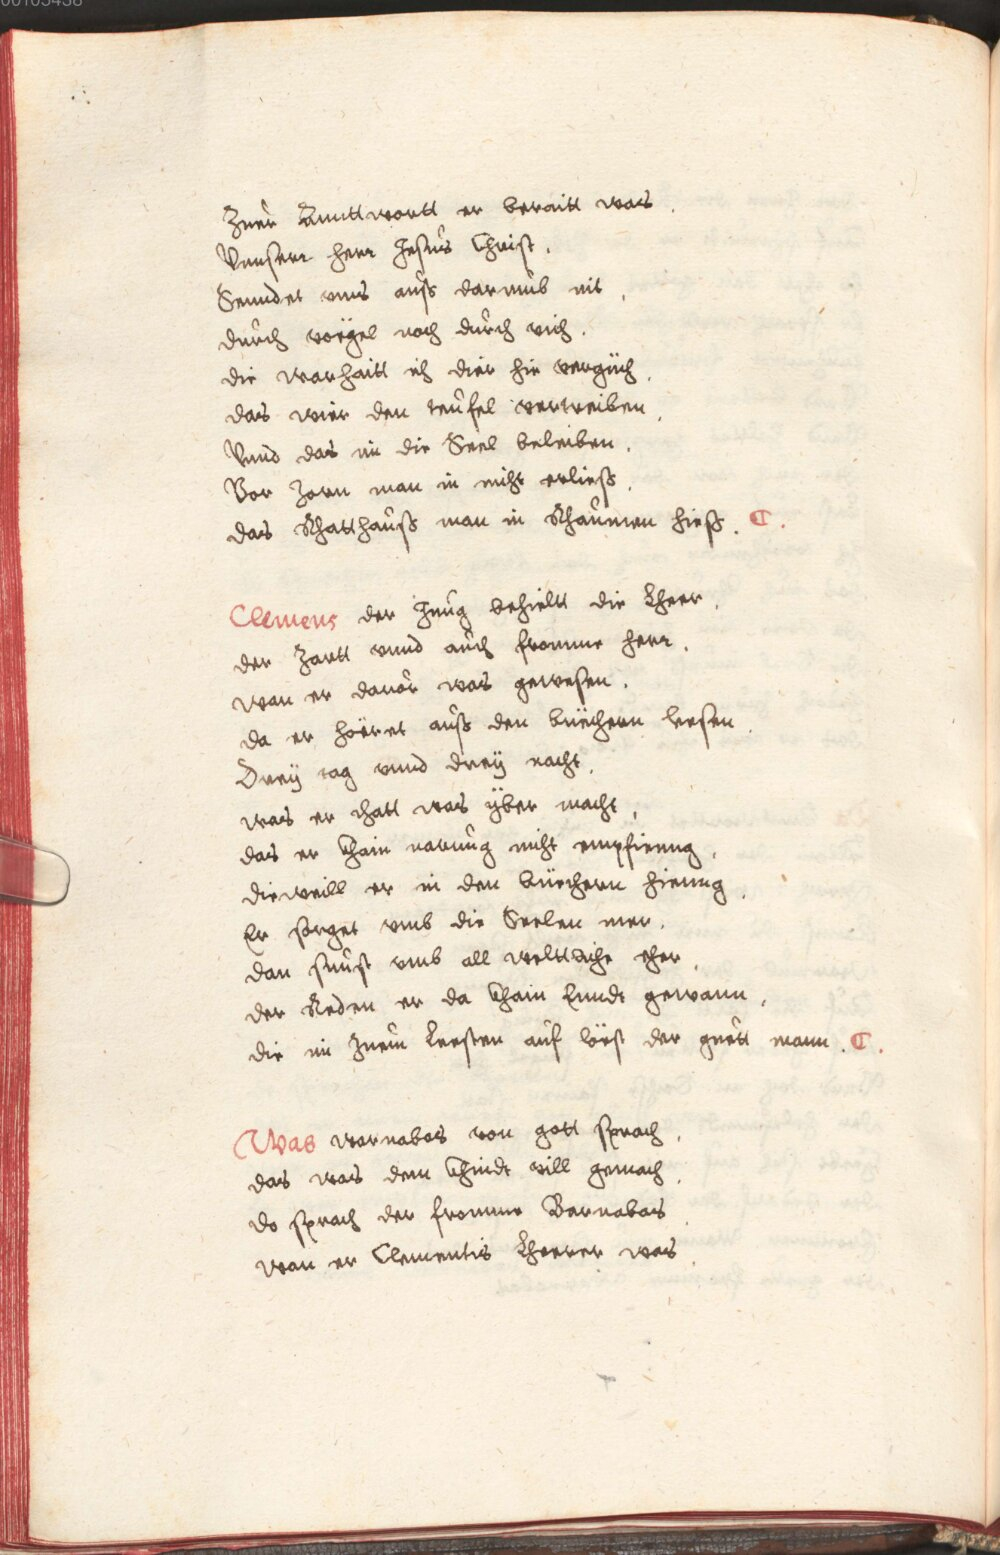 00105438
Zuer Anntwortt er beraitt was.
Vnnserr herr Jesus Christ.
Senndet vnns auß darumb nit,
durch vögel noch durch vich.
die warhaitt ich dier hie vergüch,
das wier den teufel vertreiben,
Vnnd das im die Seel beleiben.
Vor Zorn man in nicht erließ,
das Rhatthauß man in Rhaumen hieß. C.
Clemens der Jung behieltt die Lheer,
der Zartt vnnd auch fromme herr.
wan er dauor was gewesen.
da er höeret auß den büechern leesen
Dreÿ tag vnnd dreÿ nacht,
was er thatt was ÿber macht,
das er Khain narung nicht empfienng,
dieweill er in den büechern hienng
Er sorget vmb die Seelen mer,
dan sunst vmb all welttliche eher,
der Reden er da Khain Enndt gewann,
die im Zuem Leesten auf löst der guett mann. C.
Was warnabas von gott sprach,
das was dem Khindt vill gemach,
do sprach der fromme Barnabas
wan er Clementis Lheerer was.